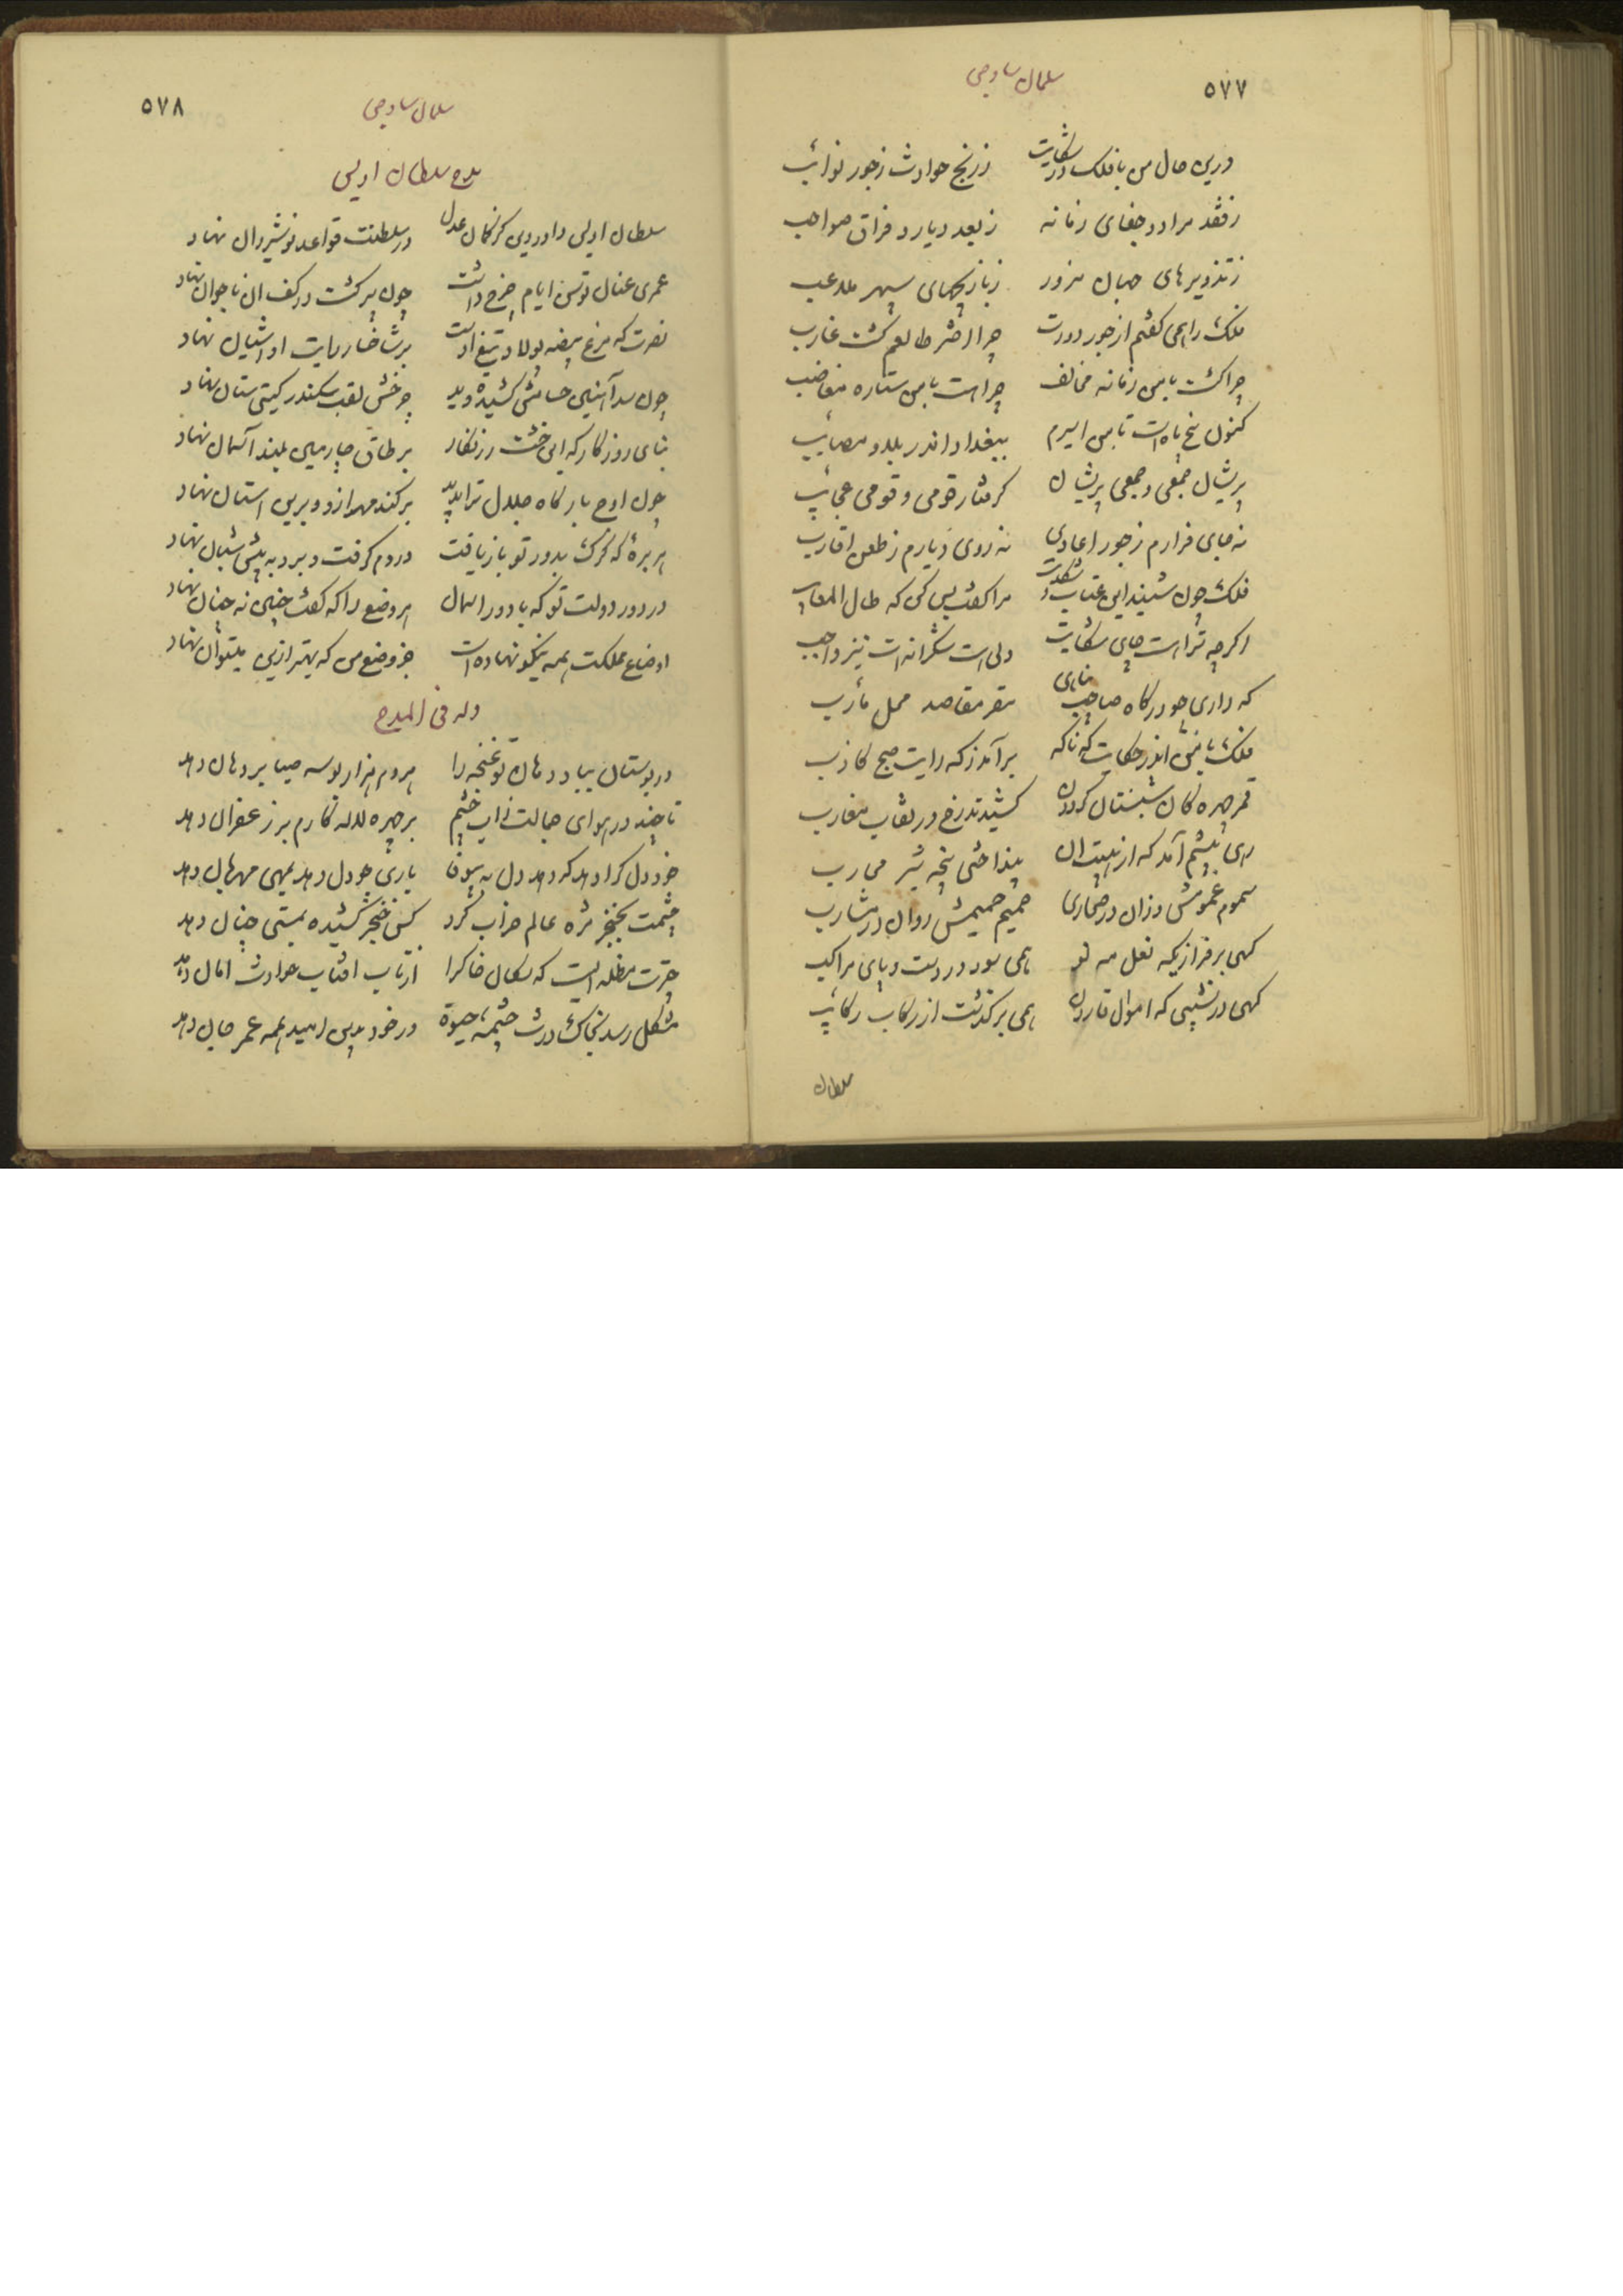 ۵۷۷
سلمان ساوجی
درین حال من با فلک در شکایت ز رنج حوادث ز جور نوائب
ز فقد مراد و جفای زمانه ز بعد دیار و فراق صواحب
ز تذویرهای جهان مزور ز بازیچهای سپهر ملاعب
فلک را همی گفتم از جور دورت چرا اختر طالعم گشت غارب
چرا گشت با من زمانه مخالف چرا هست با من ستاره مغاضب
کنون پنج ماه است تا من اسیرم ببغداد اندر بلا و مصایب
پریشان جمعی و جمعی پریشان گرفتار قومی و قومی عجائب
نه جای قرارم ز جور اعادی نه روی دیارم ز طعن اقارب
فلک چون شنید این عتاب و شکایت مرا گفت بس کن که طال المعاتب
اگرچه ترا هست جای شکایت ولی هست شکرانه‌ات نیز واجب
که داری چو درگاه صاحب پناهی مقر مقاصد محل مآرب
فلک با من اندر حکایت که ناگه برآمد ز که رایت صبح کاذب
قمر چهره‌گان شبستان گردون کشیدند رخ در نقاب مغارب
رهی پیشم آمد که از هیبت آن بینداختی پنجه شیر محارب
سموم غمومش وزان در صحاری حمیم حمیمش روان در مشارب
گهی بر فرازیکه نعل مه نو همی سود در دست و پای مراکب
گهی در نشیبی که اموال قارون همی برگذشت از رکاب رکائب
سلطان
۵۷۸
سلمان ساوجی
مدح سلطان اویس
سلطان اویس داور دین کز کمال عدل در سلطنت قواعد نوشیروان نهاد
عمری عنان توسن ایام چرخ داشت چون پیر گشت در کف آن نوجوان نهاد
نصرت که مرغ بیضه پولاد تیغ اوست بر شاخسار رایت او آشیان نهاد
چون سد آهنین حسامش کشیده دید چرخش لقب سکندر گیتی ستان نهاد
بنای روزگار که این خشت زرنگار بر طاق چارمین بلند آسمان نهاد
چون اوج بارگاه جلال ترا بدید برکند مهر ازو و برین آستان نهاد
هر بره که گرگ بدور تو بازیافت در دم گرفت و برد به پیش شبان نهاد
در دور دولت تو که بادور آسمان هر وضع را که گفت چنین نه چنان نهاد
اوضاع مملکت همه نیکو نهاده است جز وضع من که بهتر ازین میتوان نهاد
وله فی المدح
در بوستان بیاد دهان تو غنچه را هردم هزار بوسه صبا بر دهان دهد
تا چند در هوای جمالت ز آب چشم بر چهره لاله کارم و بر زعفران دهد
خود دل کرا دهد که دهد دل به بیوفا یاری چو دل دهد بمهی مهربان دهد
چشمت بخنجر مژه عالم خراب کرد کس خنجر کشیده بمستی چنان دهد
چترت مظله ایست که سکان خاک را از تاب آفتاب حوادث امان دهد
مشکل رسد بخاک درت چشمه حیوة در خود بدین امید همه عمر جان دهد